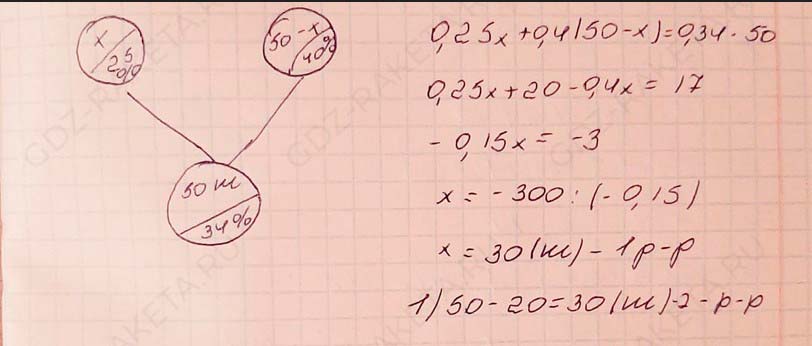 x
25
%
50-x
40%
50 ш
34%
0,25x+0,4(50-x)=0,34·50
0,25x+20-0,4x=17
-0,15x=-3
x=-300:(-0,15)
x=30(ш)-1р-р
1)50-20=30(ш)-2-р-р
GDZ-RAKETA.RU